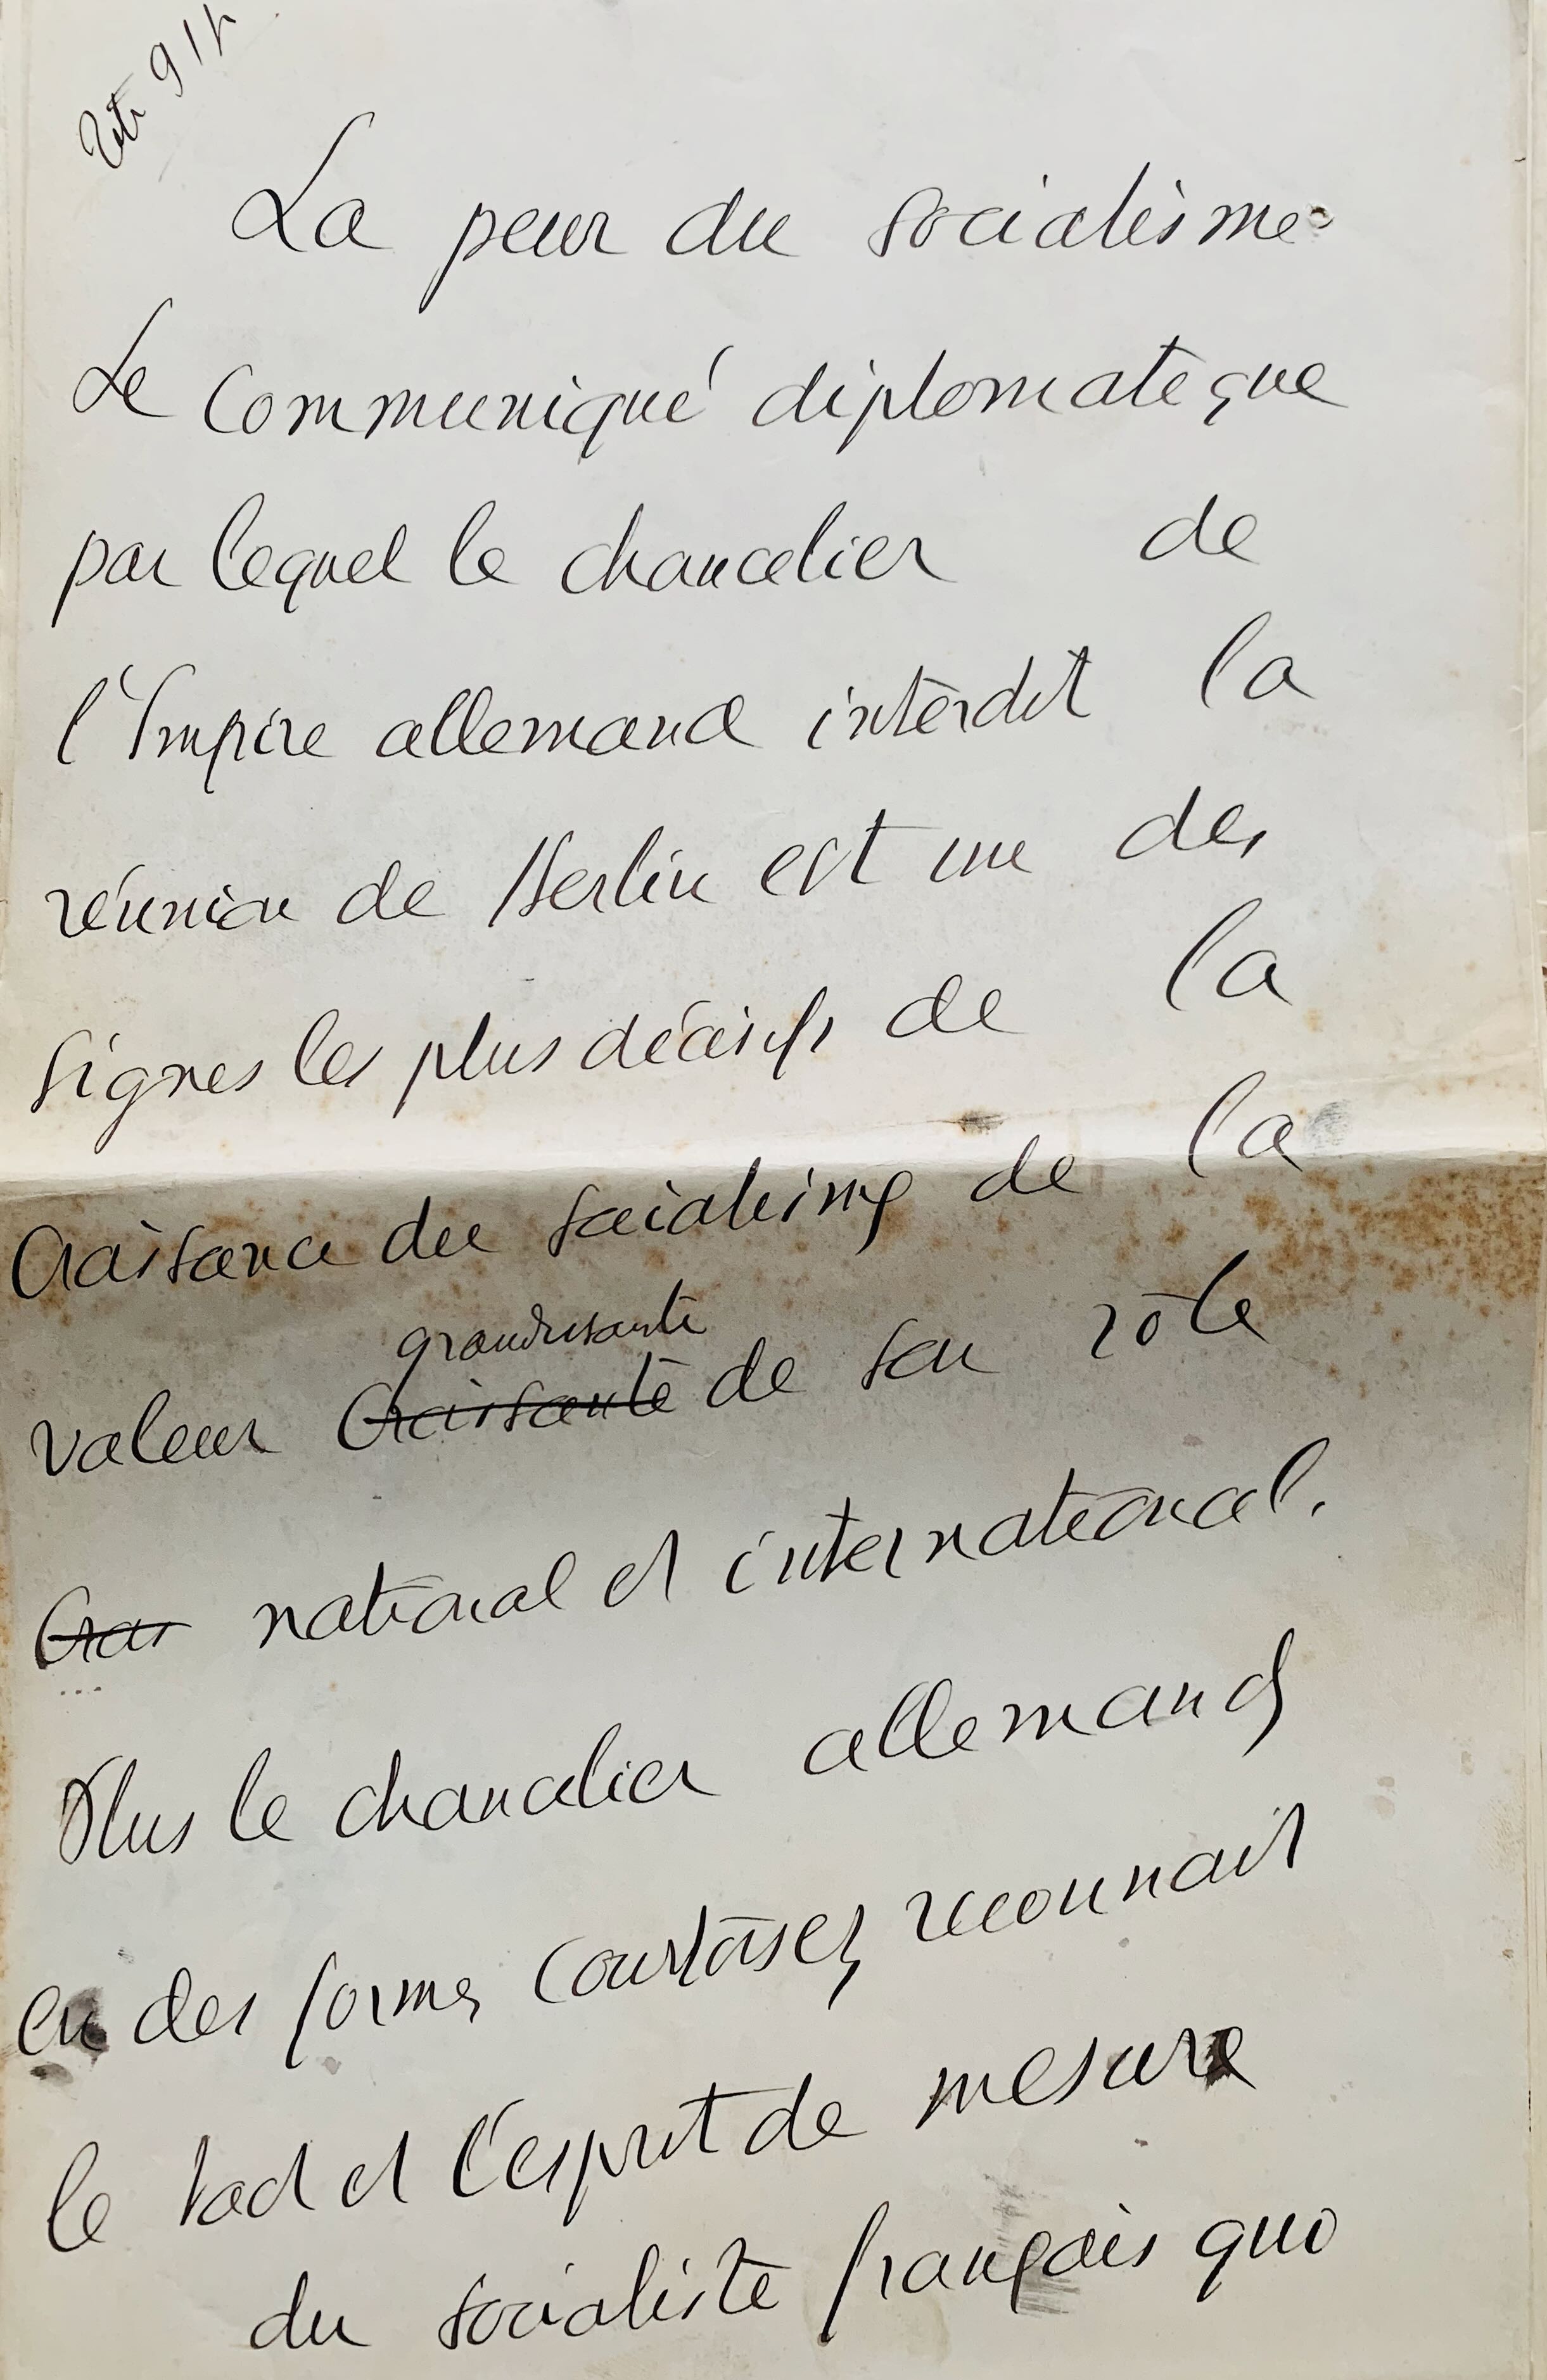 La peur du socialisme
Le communiqué diplomatique
par lequel le chancelier de
l'Empire allemand interdit la
réunion de Berlin est un des
signes les plus décisifs de la
croissance du socialisme de la
grandissante
valeur croissante de son rôle
Crois national et international.
Plus le chancelier allemand
en des formes courtoises, reconnait
le tact et l'esprit de mesure
du socialiste français que